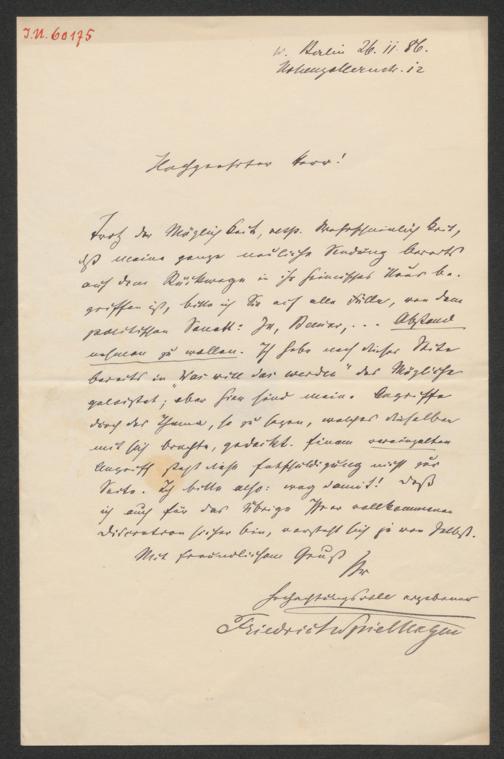 I.N. 60175
W. Berlin 26. 11. 86.
Hohenzollernstr. 12
Hochgeehrter Herr!
Trotz der Möglichkeit, resp. Wahrscheinlichkeit,
daß meine ganze neuliche Sendung bereits
auf dem Rückwege in ihr heimisches Haus be-
griffen ist, bitte ich Sie auf alle Fälle, von dem
Sonett: Ja, Baier, ... Abstand
nehmen zu wollen. Ich habe nach dieser Seite
bereits in "Was will das werden" das Mögliche
geleistet; aber hier sind meine Angriffe
durch das Thema, so zu sagen, welches dieselben
mit sich brachte, gedeckt. Einem vereinzelten
Angriff steht diese Entschuldigung nicht zur
Seite. Ich bitte also: weg damit! Daß
ich auch für das Übrige Ihrer vollkommenen
Discretion sicher bin, versteht sich ja von selbst.
Mit freundlichem Gruß
Ihr
hochachtungsvoll ergebener
Friedrich Spielhagen